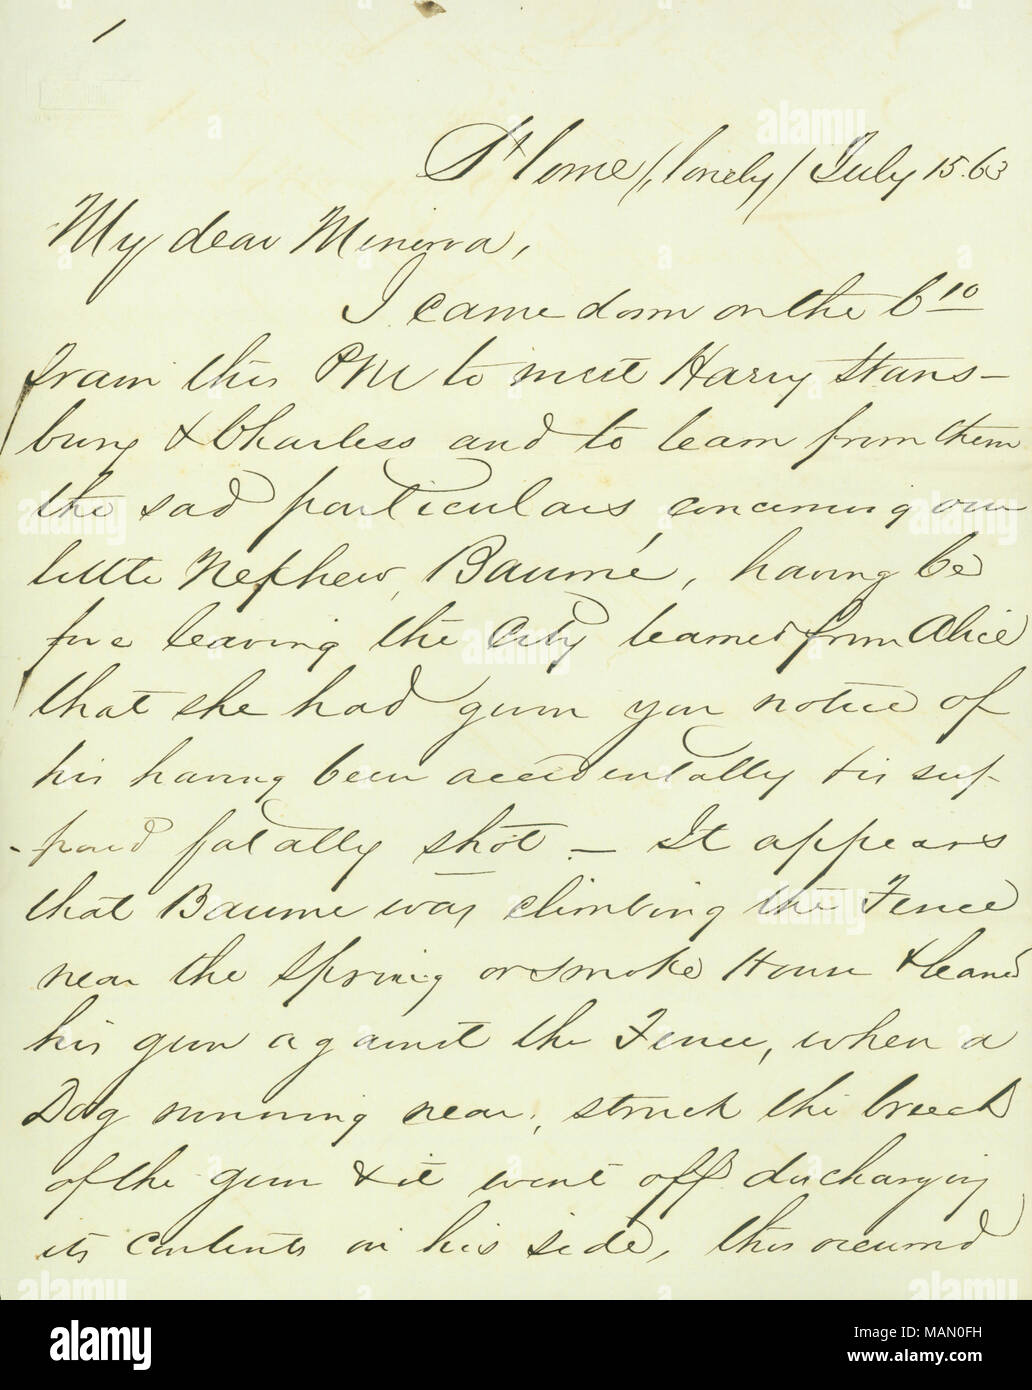 1
Home (lonely) July 15. 63
My dear Minerva,
I came down on the 6 10
train this PM to meet Harry Stans-
bury & Charless and to learn from them
the sad particulars concerning our
little Nephew, Baumé, having be
fore leaving the City learned from Alice
that she had given you notice of
his having been accidentally & is sup-
-posed fatally shot — It appears
that Baume was climbing the Fence
near the Spring or smoke House & leaned
his gun against the Fence, when a
Dog running near, struck the breech
of the gun & it went off discharging
its contents in his side, this occurred
alamy
Image ID: MAN0FH
www.alamy.com